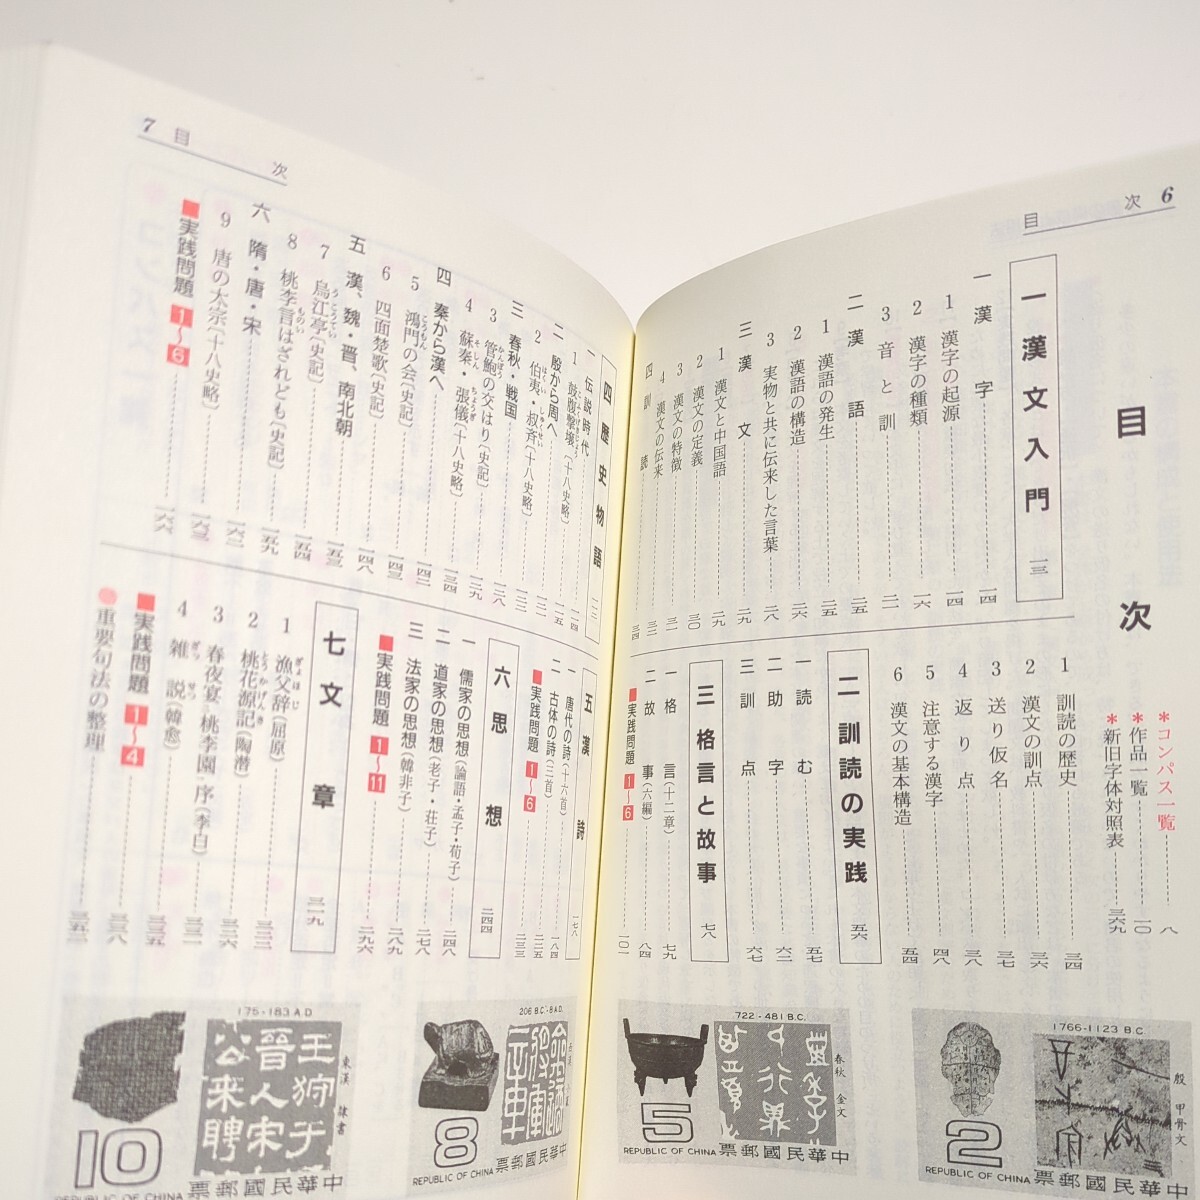 次 6
目
目次
＊コンパス一覧 八
＊作品一覧 一〇
＊新旧字体対照表 三六九
一 漢文入門 一三
一 漢字 一四
1 漢字の起源 一四
2 漢字の種類 一六
3 音と訓 二一
二 漢語 二五
1 漢語の発生 二五
2 漢語の構造 二六
3 実物と共に伝来した言葉 二八
三 漢文 二九
1 漢文と中国語 二九
2 漢文の定義 三〇
3 漢文の特徴 三一
4 漢文の伝来 三二
四 訓読 三四
1 訓読の歴史 三四
2 漢文の訓点 三六
3 送り仮名 三七
4 返り点 三八
5 注意する漢字 四八
6 漢文の基本構造 五四
二 訓読の実践 五六
一 読む 五七
二 助字 六二
三 訓点 六七
三 格言と故事 七八
一 格言(十二章) 七九
二 故事(六編) 八四
■実践問題 1～6 一〇一
7 目次
四 歴史物語 一一三
一 伝説時代 一一四
1 鼓腹撃壌〔十八史略〕 一一五
二 殷から周へ
2 伯夷・叔斉〔十八史略〕 一二三
三 春秋・戦国 一二八
3 管鮑の交はり〔史記〕 一二九
4 蘇秦・張儀〔十八史略〕 一三四
四 秦から漢へ 一四二
5 鴻門の会〔史記〕 一四三
6 四面楚歌〔史記〕 一四八
五 漢、魏・晋、南北朝 一五三
7 烏江亭〔史記〕 一五四
8 桃李言はざれども〔史記〕 一五九
六 隋・唐・宋 一六二
9 唐の太宗〔十八史略〕 一六三
■実践問題 1～6 一六六
五 漢詩 一七八
一 唐代の詩(十六首) 一八四
二 古体の詩(三首) 二二五
■実践問題 1～6 二三三
六 思想 二四四
一 儒家の思想(論語・孟子・荀子) 二四八
二 道家の思想(老子・荘子) 二七八
三 法家の思想(韓非子) 二八九
■実践問題 1～11 二九六
七 文章 三一九
1 漁父辞(屈原)
2 桃花源記(陶潜) 三二六
3 春夜宴桃李園序(李白) 三三一
4 雑説(韓愈) 三三五
■実践問題 1～4 三三八
●重要句法の整理 三五二
1766-1123 B.C.
殷 甲骨文
2
REPUBLIC OF CHINA
中華民國郵票
722-481 B.C.
春秋 金文
5
REPUBLIC OF CHINA
中華民國郵票
206 B.C.-8 A.D.
8
REPUBLIC OF CHINA
中華民國郵票
175-183 A.D
東漢 隸書
10
REPUBLIC OF CHINA
中華民國郵票